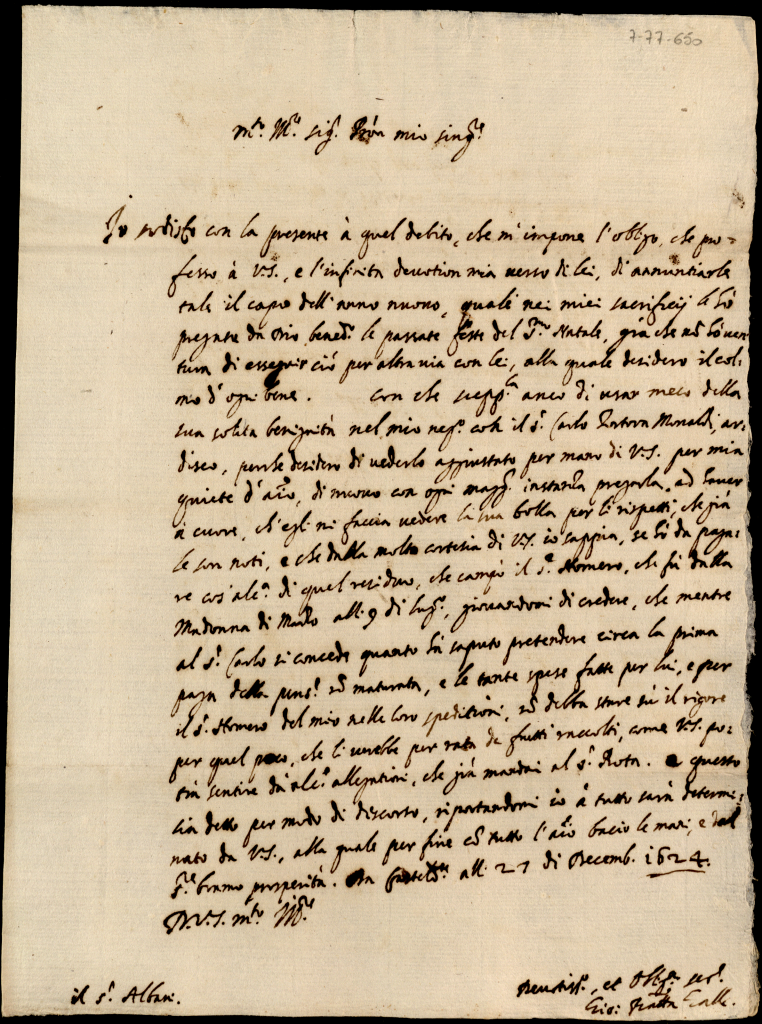 7-77-650
m.to Ill.re sig.r Pron mio sing.re
Io sodisfo con la presente à quel debito, che m'impone l'obligo, che pro=
fesso à V.S., e l'infinita devotion mia verso di lei, di annuntiarle
tale il capo dell'anno nuovo, quale nei miei sacrificij le hò
pregate da Dio bened.o le passate feste del S.mo Natale, già che nõ hò ven
tura di esseguir ciò per altra via con lei, alla quale desidero il col=
mo d'ogni bene. Con che supp.la anco di usar meco della
sua solita benignità nel mio neg.o col il s.r Carlo Monaldi, ar=
disco, perche desidero di vederlo aggiustato per mano di V.S. per mia
quiete d'aĩo, di nuovo con ogni magg.r instanza pregarla, ad haver
à cuore, ch'egli mi faccia vedere la sua bolla per li rispetti, che già
le son noti, e che dalla molta cortesia di V.S. io sappia, se hò da paga=
re cos'alc.a di quel residuo, che campò il s.r Homero, che fù dalla
Madonna di Marzo alli 9 di lug.o, giovandomi di credere, che mentre
al s.r Carlo si concede quanto hà saputo pretendere circa la prima
paga della pens.e nõ maturata, e le tante spese fatte per lui, e per
il s.r Homero del mio nelle loro speditioni, nõ debba stare sù il rigore
per quel poco, che li verebbe per rata de frutti raccolti, come V.S. po=
trà sentire da alc.e allegationi, che già mandai al s.r Rota. e questo
sia detto per modo di discorso, riportandomi io à tutto sarà determi=
nato da V.S., alla quale per fine cõ tutto l'aĩo bacio le mani, e dal
S.re bramo prosperità. Da alli 27 di Decemb. 1624.
D.V.S. m.to Ill.re
il s.r Albani.
Devotiss.o, et Obl.mo ser.re
Gio: Batta Galli.